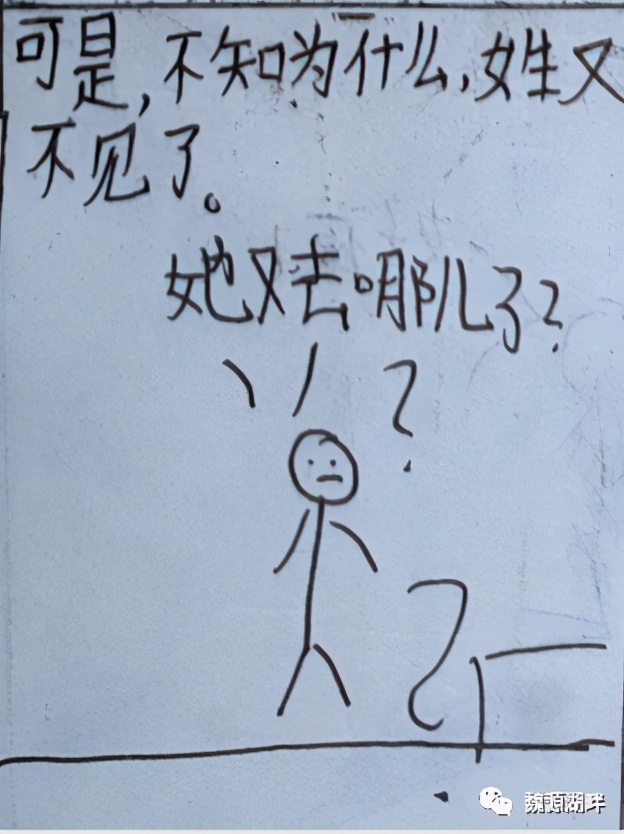 可是,不知为什么,姓又
不见了。
她又去哪儿了?
?
?
魏源湖畔